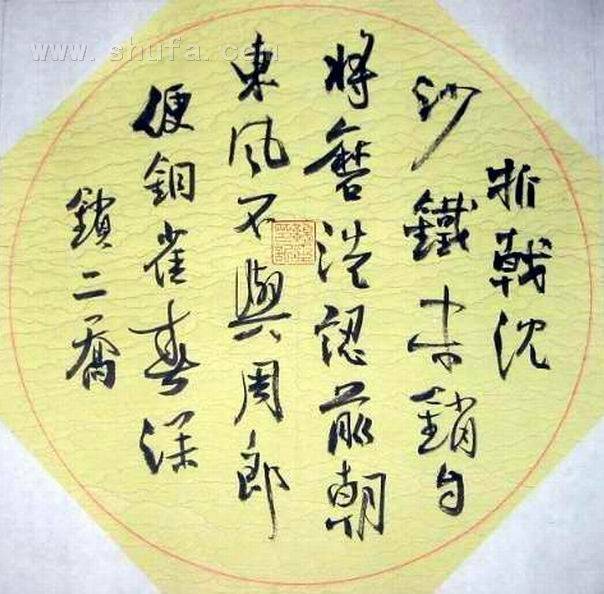 折戟沈
沙鐵未銷自
將磨洗認前朝
東風不與周郎
便銅雀春深
鎖二喬
www.shufa.com